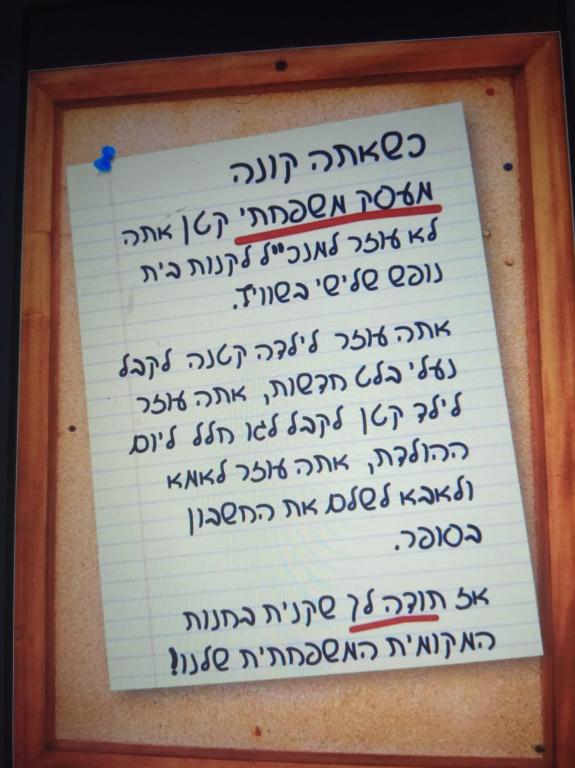 כשאתה קונה
מעסק משפחתי קטן אתה
לא עוזר למנכ"ל לקנות בית
נופש שלישי בשוויץ.
אתה עוזר לילדה קטנה לקבל
נעלי בלט חדשות, אתה עוזר
לילד קטן לקבל לגו חלל ליום
ההולדת, אתה עוזר לאמא
ולאבא לשלם את החשבון
בסופר.
אז תודה לך שקנית בחנות
המקומית המשפחתית שלנו!